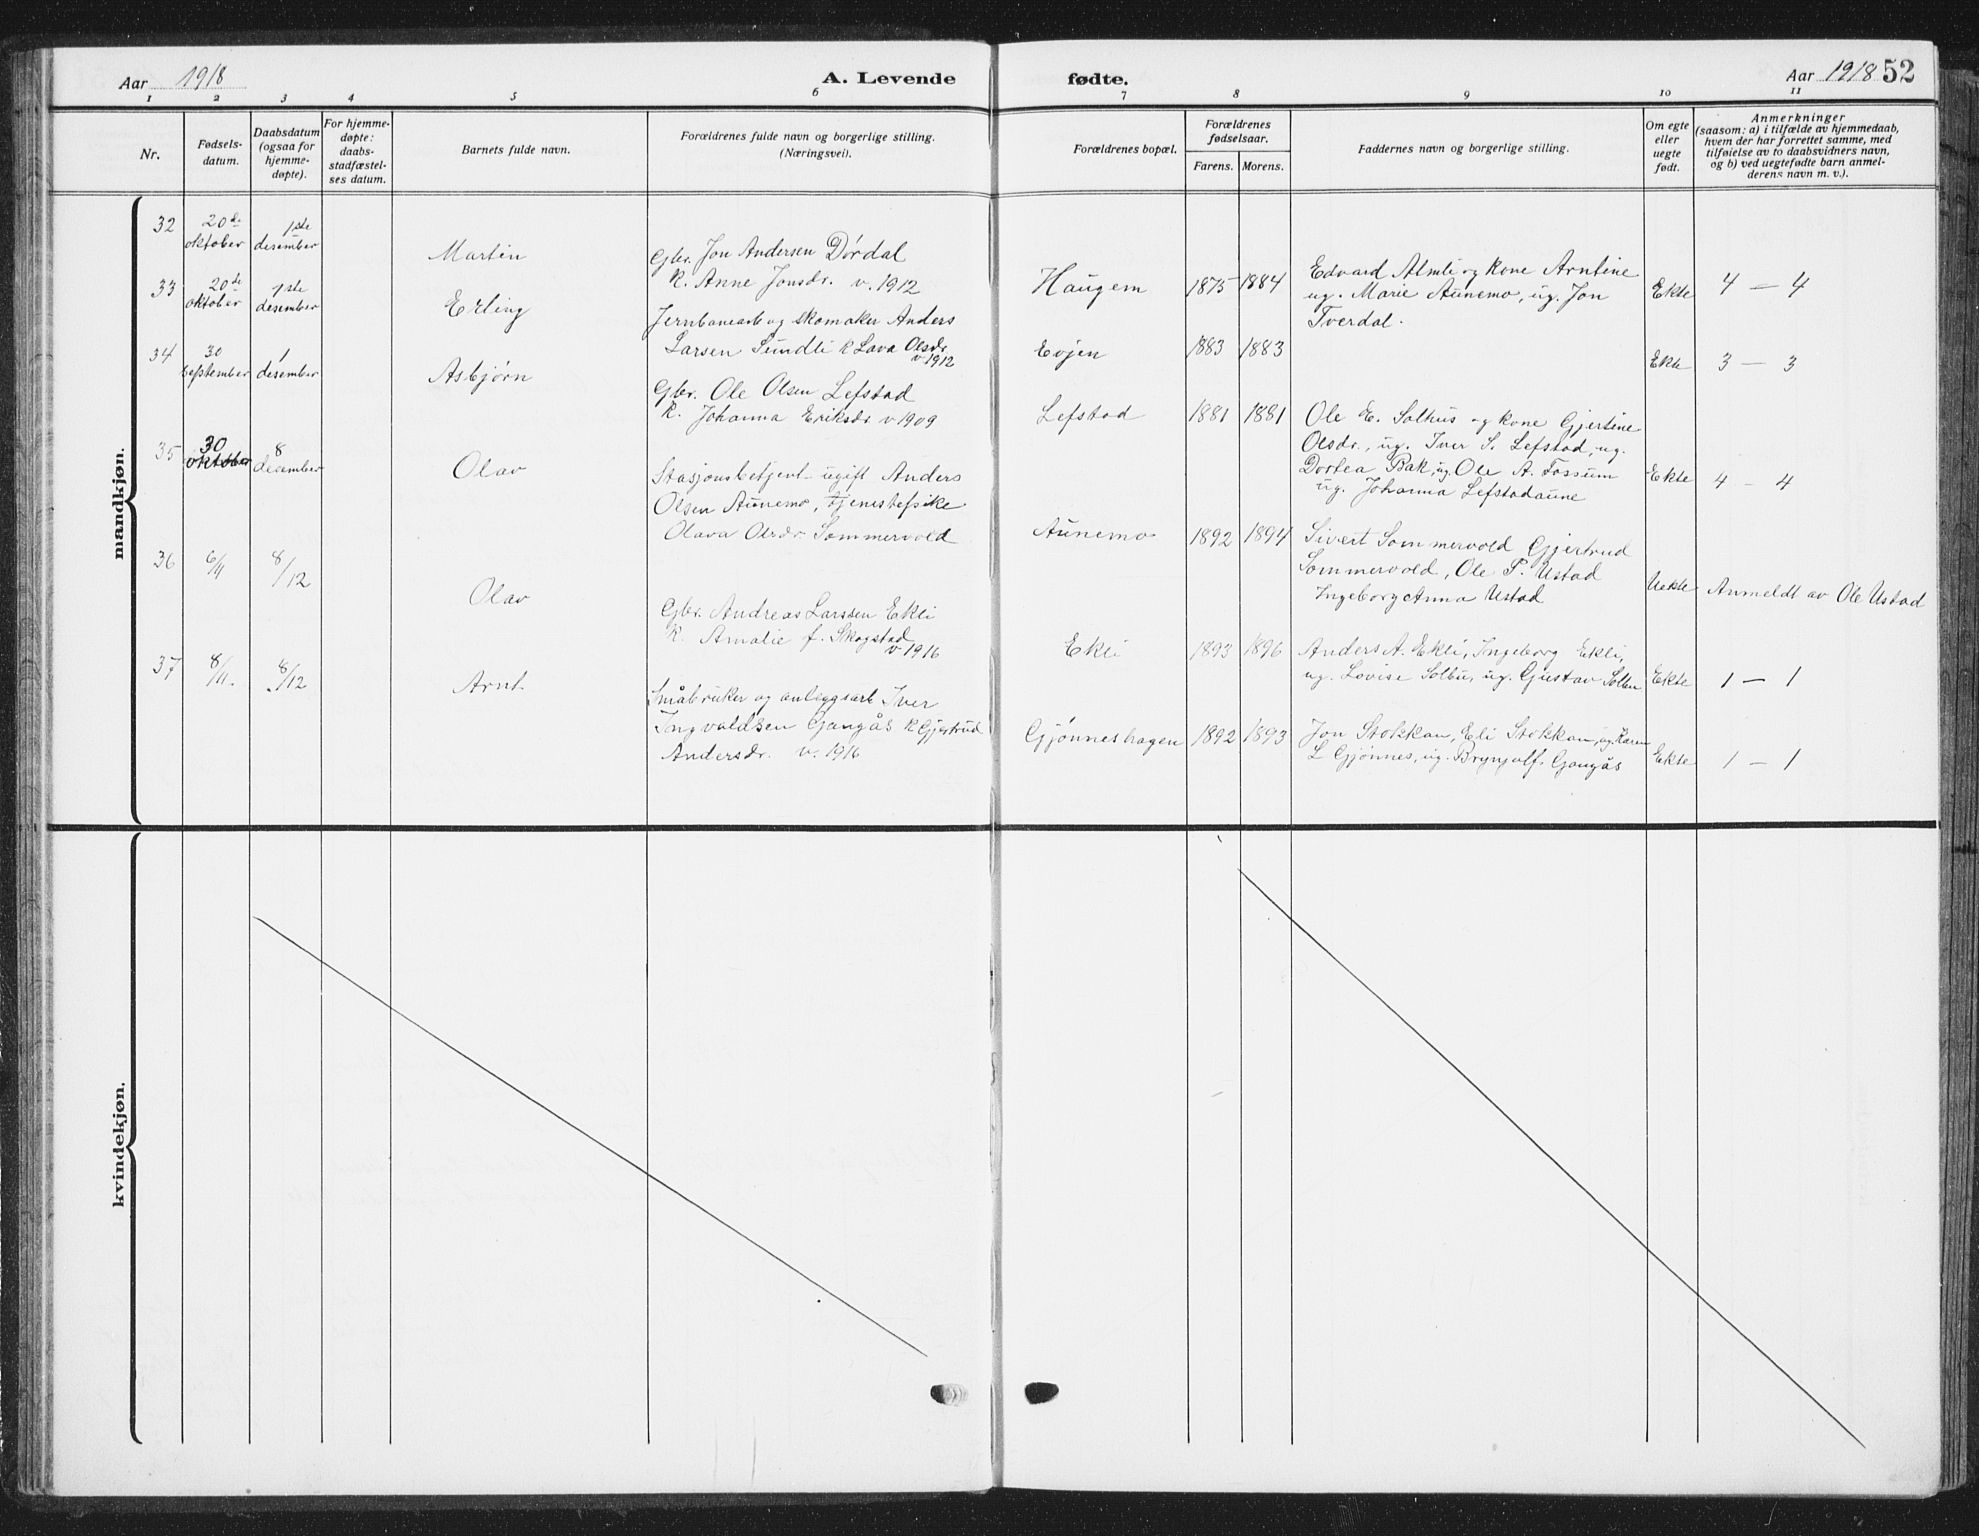 Aar 1918
A. Levende
fødte.
Aar 1918 52
1 2 3 4 5 6 7 8 9 10 11
Nr.
Fødsels-
datum.
Daabsdatum
(ogsaa for
hjemme-
døpte).
For hjemme-
døpte:
daabs-
stadfæstel-
ses datum.
Barnets fulde navn.
Forældrenes fulde navn og borgerlige stilling.
(Næringsvei).
Forældrenes bopæl.
Forældrenes
fødselsaar.
Farens. Morens.
Faddernes navn og borgerlige stilling.
Om egte
eller
uegte
født.
Anmerkninger
(saasom: a) i tilfælde av hjemmedaab,
hvem der har forrettet samme, med
tilføielse av to daabsvidners navn,
og b) ved uegtefødte barn anmel-
derens navn m. v.).
mandkjøn.
32
20de
oktober
1ste
desember
Martin
Gbr. Jon Andersen Dørdal
k. Anne Jonsdr. v. 1912
Haugem
1875 1884
Edvard Almli og kone Arntine
ug. Marie Aunemo, ug. Jon
Tverdal.
Ekte
4 — 4
33
20de
oktober
1ste
desember
Erling
Jernbanearb og skomaker Anders
Larsen Sundli k Lava Olsdr
v 1912
Evjen
1883 1883
Ekte
3 — 3
34
30
september
1
desember
Asbjørn
Gbr. Ole Olsen Lefstad
k. Johanna Eriksdr v 1909
Lefstad
1881 1881
Ole E. Solhus og kone Gjertine
Olsdr., ug. Iver S. Lefstad, ug.
Dortea Bak, ug. Ole A. Fossum
ug. Johanna Lefstadaune
Ekte
4 — 4
35
30
oktober
8
desember
Olav
Stasjonsbetjent ugift Anders
Olsen Aunemo, tjenestepike
Olava Olsdr. Sommervold
Aunemo
1892 1894
Sivert Sommervold Gjertrud
Sommervold, Ole P. Ustad
Ingeborg Anna Ustad
Uekte
Anmeldt av Ole Ustad
36
6/11
8/12
Olav
Gbr. Andreas Larssen Ekli
k. Amalie f. Skogstad
v 1916
Ekli
1893 1896
Anders A. Ekli, Ingeborg Ekli,
ug. Lovise Solbu, ug. Gustav Solbu
Ekte
1 — 1
37
8/11.
8/12
Arnt
Småbruker og anleggsarb Iver
Ingvaldsen Gangås k Gjertrud
Andersdr. v. 1916
Gjønneshagen
1892 1893
Jon Stokkan, Eli Stokkan, ug. Karen
L Gjønnes, ug. Brynjulf Gangås
Ekte
1 — 1
kvindekjøn.